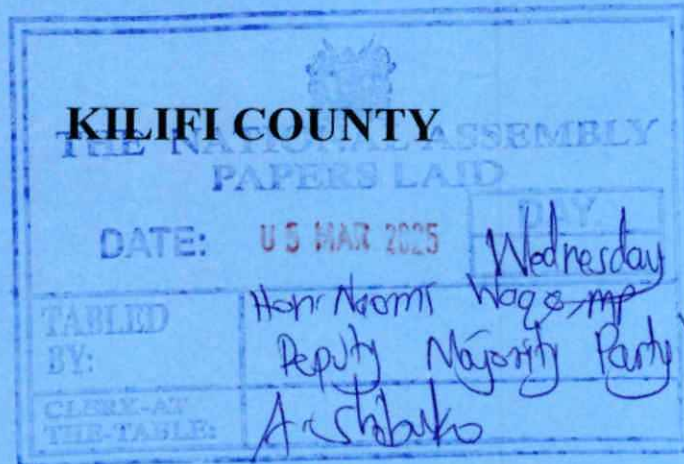 KILIFI COUNTY
THE NATIONAL ASSEMBLY
PAPERS LAID
DATE: 05 MAR 2025 DAY.
Wednesday
TABLED BY: Hon. Naomi Waqo, MP
Deputy Majority Party
CLERK-AT THE-TABLE: